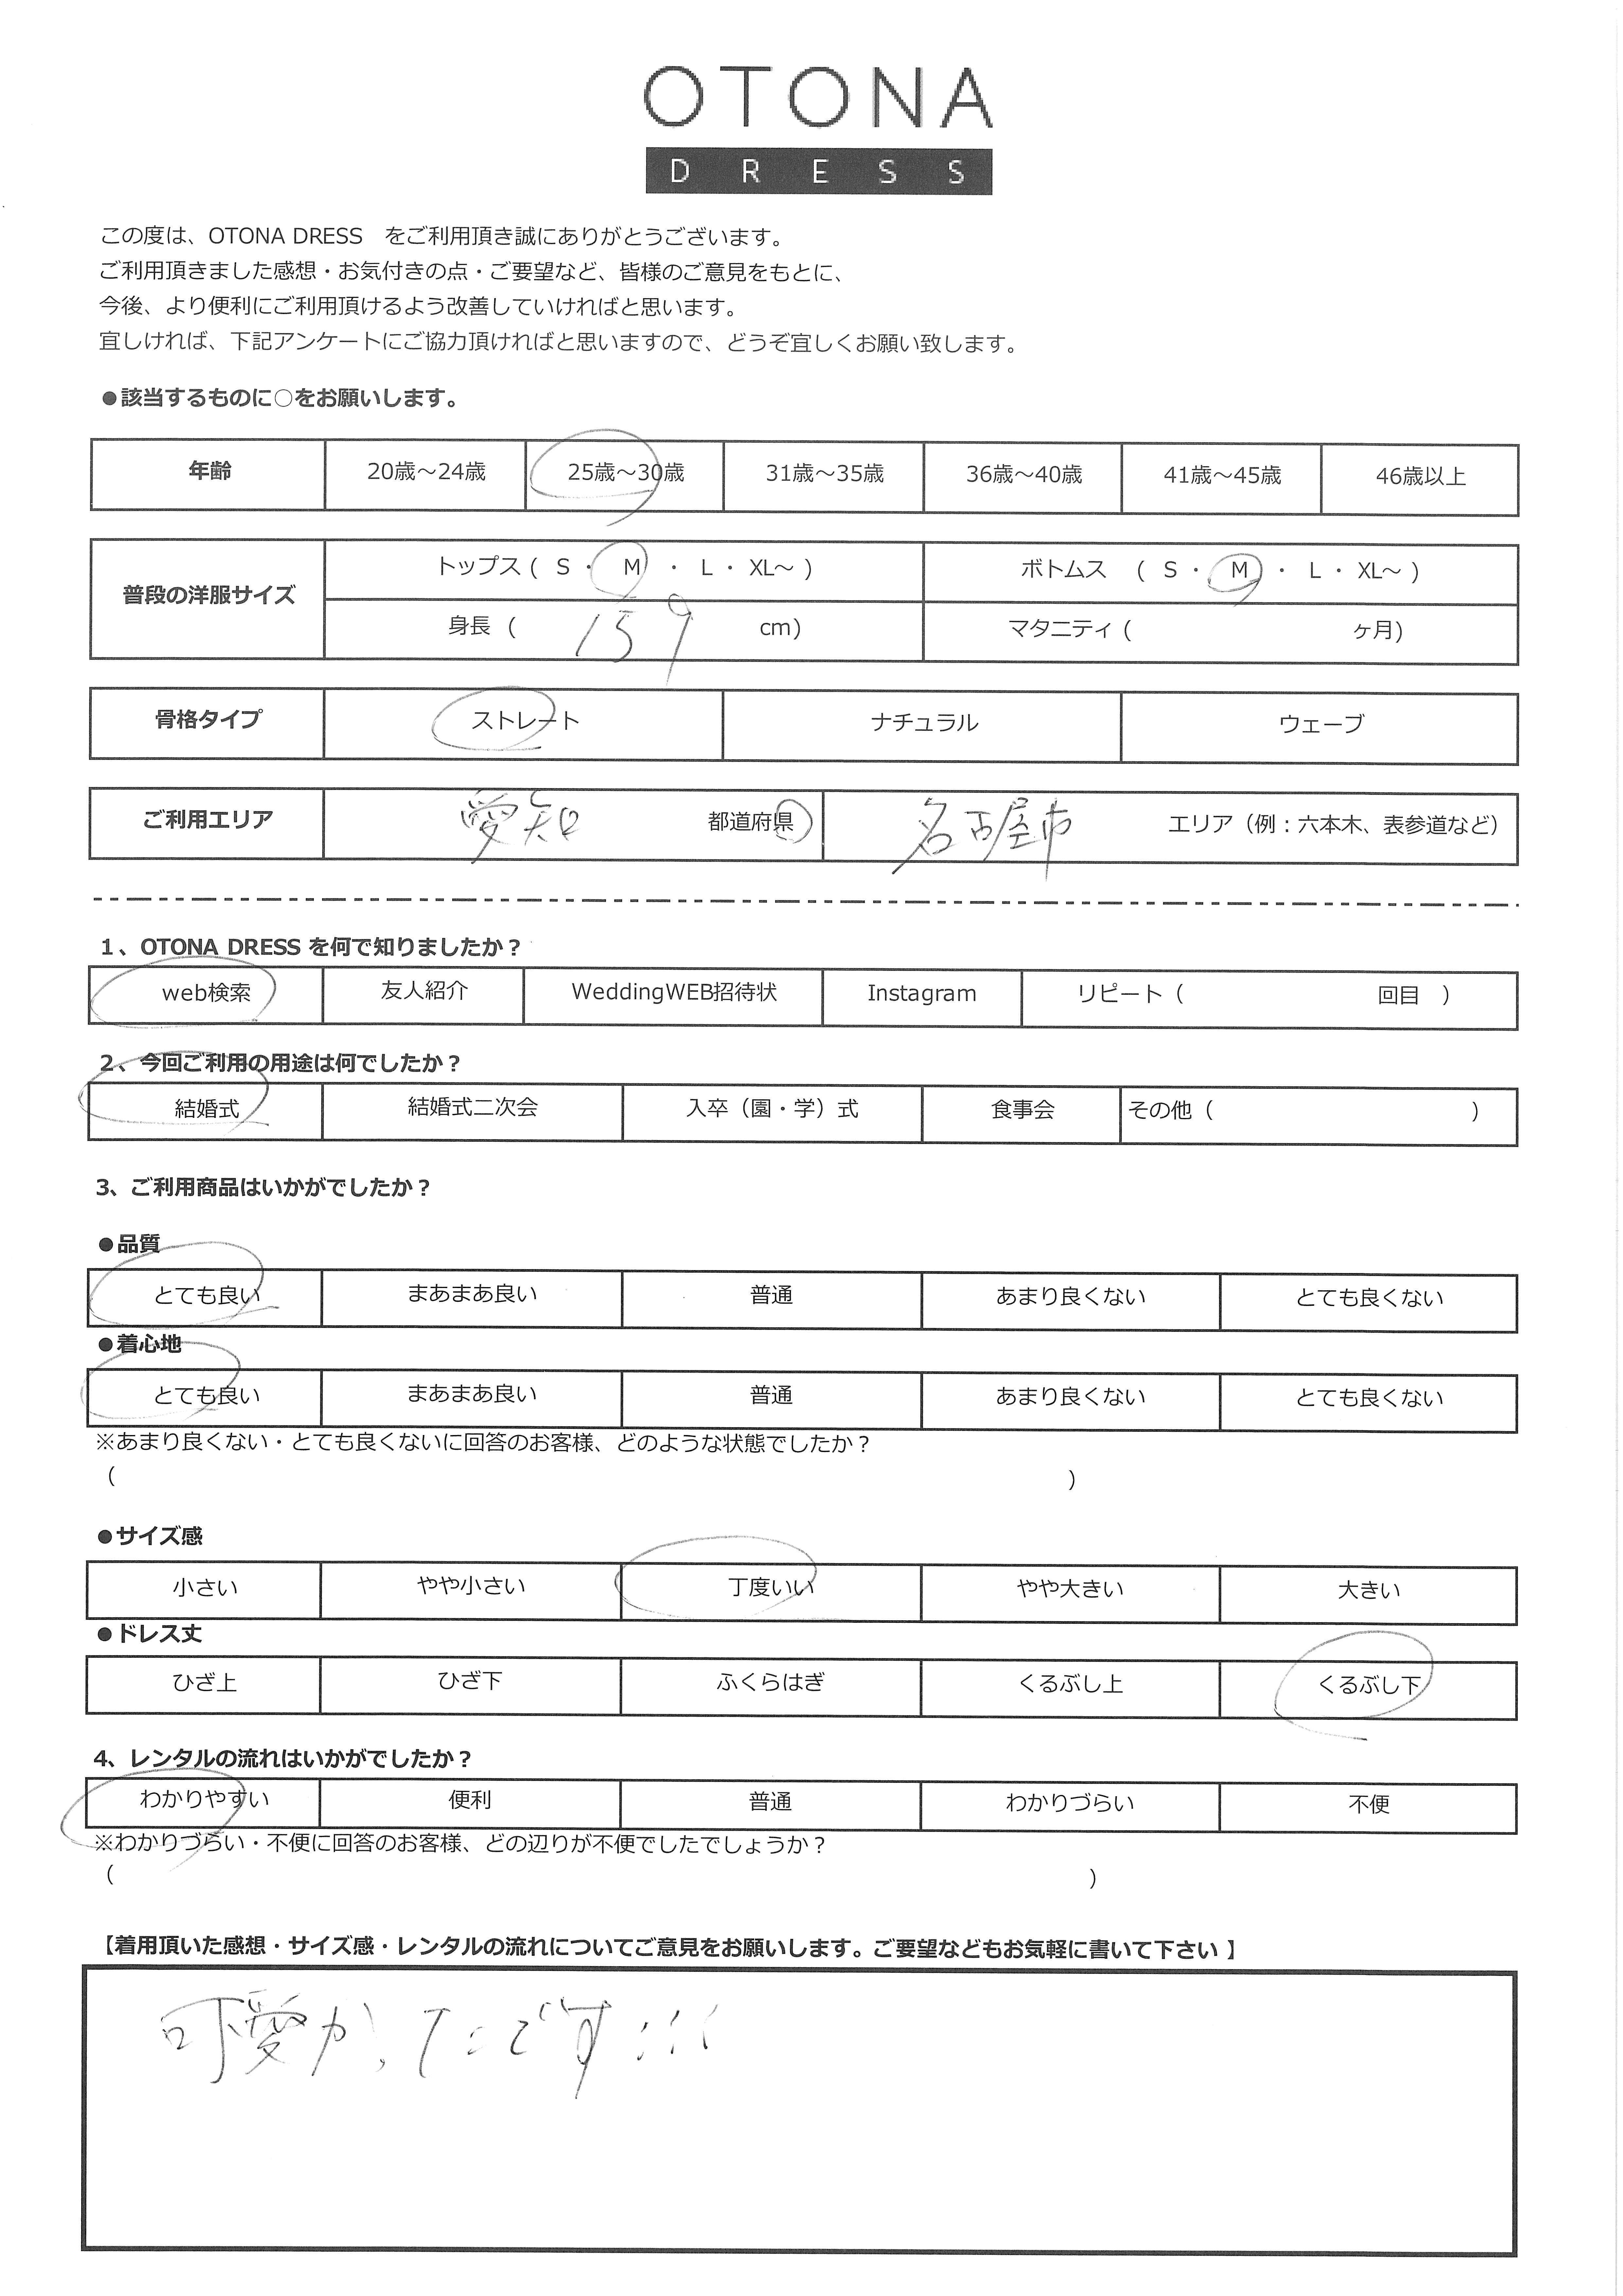 OTONA
DRESS
この度は、OTONA DRESS　をご利用頂き誠にありがとうございます。
ご利用頂きました感想・お気付きの点・ご要望など、皆様のご意見をもとに、
今後、より便利にご利用頂けるよう改善していければと思います。
宜しければ、下記アンケートにご協力頂ければと思いますので、どうぞ宜しくお願い致します。
●該当するものに○をお願いします。
年齢 20歳～24歳 25歳～30歳 31歳～35歳 36歳～40歳 41歳～45歳 46歳以上
普段の洋服サイズ トップス ( S ・ M ・ L ・ XL～ ) ボトムス ( S ・ M ・ L ・ XL～ )
身長 ( 159 cm) マタニティ ( ヶ月)
骨格タイプ ストレート ナチュラル ウェーブ
ご利用エリア 愛知 都道府県 名古屋市 エリア（例：六本木、表参道など）
1、OTONA DRESS を何で知りましたか？
web検索 友人紹介 WeddingWEB招待状 Instagram リピート（ 回目 ）
2、今回ご利用の用途は何でしたか？
結婚式 結婚式二次会 入卒（園・学）式 食事会 その他（ ）
3、ご利用商品はいかがでしたか？
●品質
とても良い まあまあ良い 普通 あまり良くない とても良くない
●着心地
とても良い まあまあ良い 普通 あまり良くない とても良くない
※あまり良くない・とても良くないに回答のお客様、どのような状態でしたか？
（ ）
●サイズ感
小さい やや小さい 丁度いい やや大きい 大きい
●ドレス丈
ひざ上 ひざ下 ふくらはぎ くるぶし上 くるぶし下
4、レンタルの流れはいかがでしたか？
わかりやすい 便利 普通 わかりづらい 不便
※わかりづらい・不便に回答のお客様、どの辺りが不便でしたでしょうか？
（ ）
【着用頂いた感想・サイズ感・レンタルの流れについてご意見をお願いします。ご要望などもお気軽に書いて下さい 】
可愛かったです